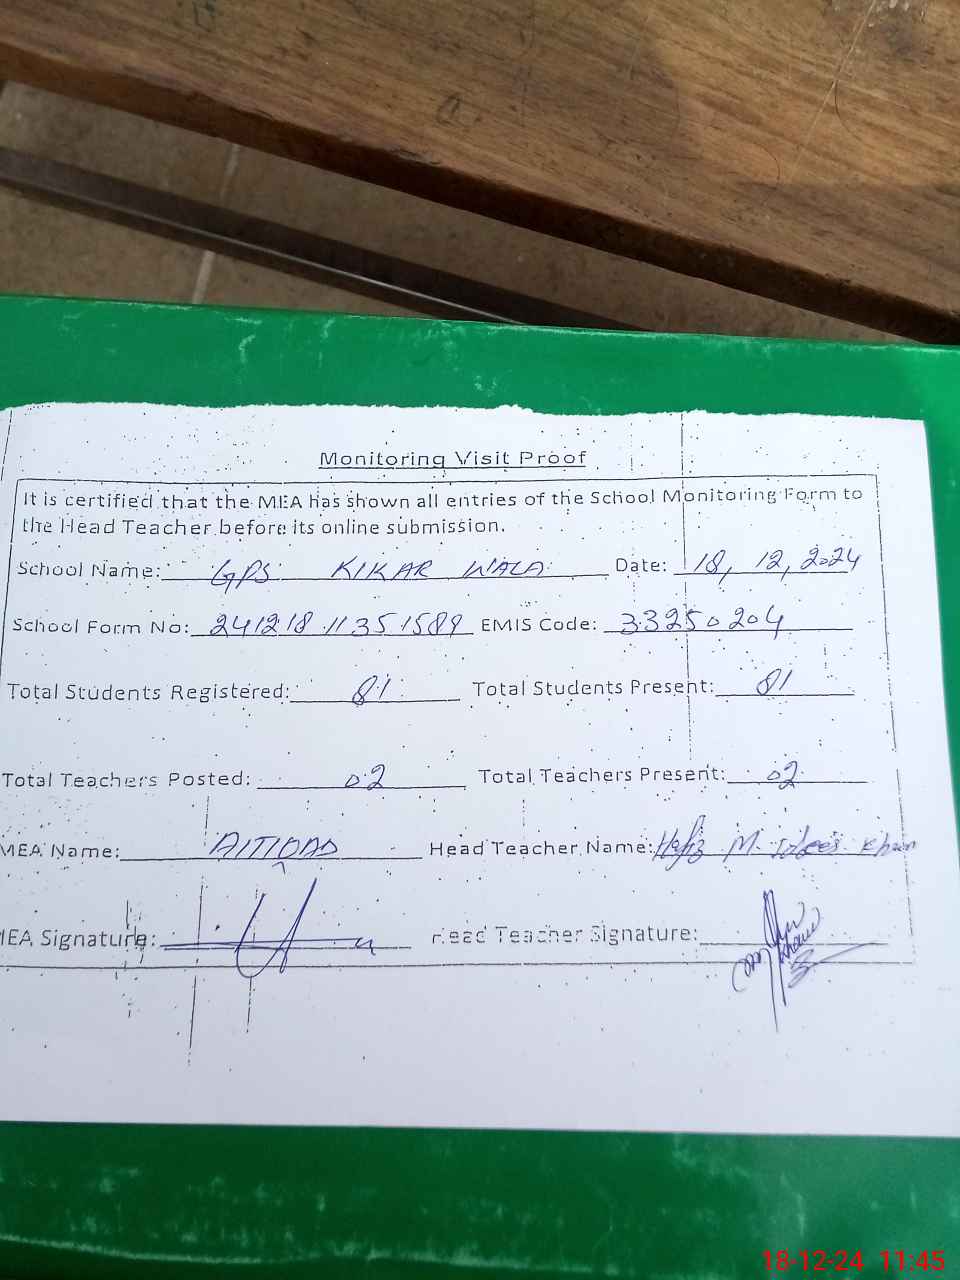 Monitoring Visit Proof
It is certified that the MEA has shown all entries of the School Monitoring Form to
the Head Teacher before its online submission.
School Name: GPS KIKAR WALA Date: 18, 12, 2024
School Form No: 241218 1135 1589 EMIS Code: 33250204
Total Students Registered: 81 Total Students Present: 81
Total Teachers Posted: 02 Total Teachers Present: 02
MEA Name: Head Teacher Name: Hafiz M. Idrees Khan
MEA Signature: Head Teacher Signature:
18-12-24 11:45